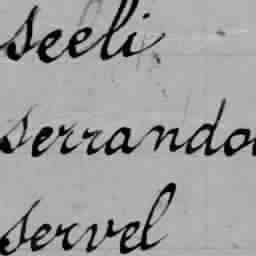 seeli
serrando
servel